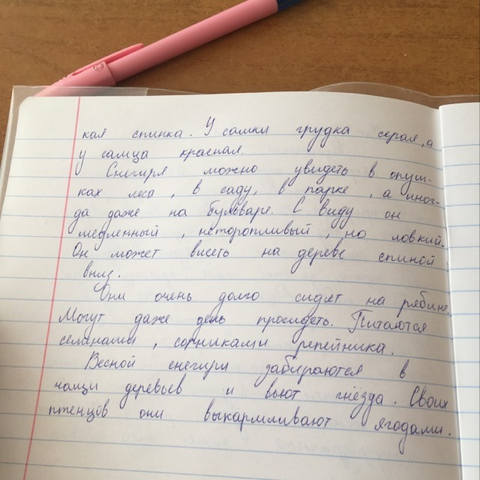 кая спинка. У самки грудка серая, а
у самца красная.
Снегиря можно увидеть в опуш-
ках леса, в саду, в парке, а иног-
да даже на бульваре. С виду он
медленный, неторопливый, но ловкий.
Он может висеть на дереве спиной
вниз.
Они очень долго сидят на рябине.
Могут даже день просидеть. Питаются
семенами, сорниками репейника.
Весной снегири забираются в
чащи деревьев и вьют гнёзда. Своих
птенцов они выкармливают ягодами.